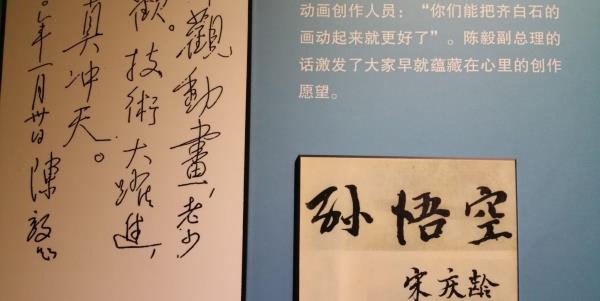 觀動畫，老少
歡。技術大躍進，
真冲天。
年一月日 陳毅
动画创作人员：“你们能把齐白石的
画动起来就更好了”。陈毅副总理的
话激发了大家早就蕴藏在心里的创作
愿望。
孙悟空
宋庆龄